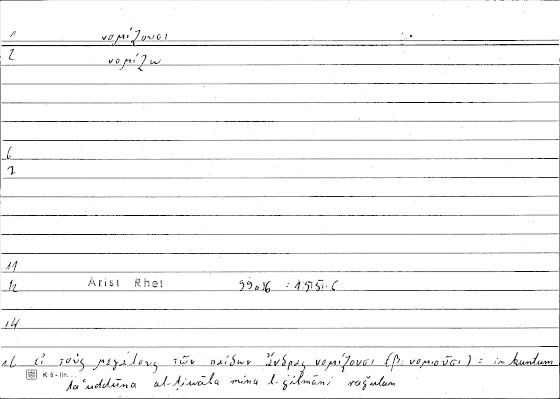 1 νομίζουσι
2 νομίζω
6
7
11
12 Arist Rhet 99a36 :
14
16 εἰ τοὺς μεγάλους τῶν παίδων ἄνδρας νομίζουσι (β: νομιοῦσι) = in kuntum
K 5 -
taʿuddūna al-ṭiwāla mina l-ġilmāni raǧulan